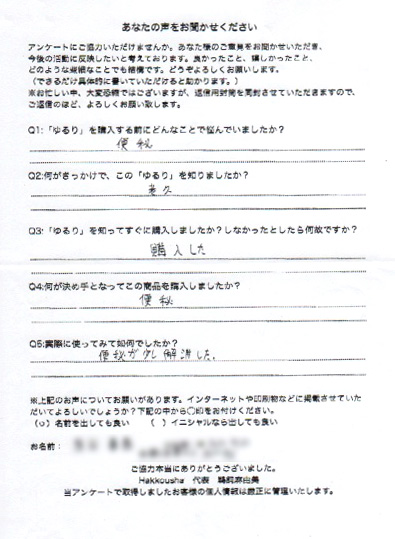 あなたの声をお聞かせください
アンケートにご協力いただけませんか。あなた様のご意見をお聞かせいただき、
今後の活動に反映したいと考えております。良かったこと、嬉しかったこと、
どのような些細なことでも結構です。どうぞよろしくお願いします。
（できるだけ具体的に書いていただけると助かります。）
※お忙しい中、大変恐縮ではございますが、返信用封筒を同封させていただきますので、
ご返信のほど、よろしくお願い致します。
Q1:「ゆるり」を購入する前にどんなことで悩んでいましたか？
便秘
Q2:何がきっかけで、この「ゆるり」を知りましたか？
Q3:「ゆるり」を知ってすぐに購入しましたか？しなかったとしたら何故ですか？
購入した
Q4:何が決め手となってこの商品を購入しましたか？
便秘
Q5:実際に使ってみて如何でしたか？
便秘が少し解消した。
※上記のお声についてお願いがあります。インターネットや印刷物などに掲載させていた
だいてよろしいでしょうか？下記の中から〇印をお付けください。
（○）名前を出しても良い　（　）イニシャルなら出しても良い
お名前：
ご協力本当にありがとうございました。
Hakkousha　代表
当アンケートで取得しましたお客様の個人情報は厳正に管理いたします。